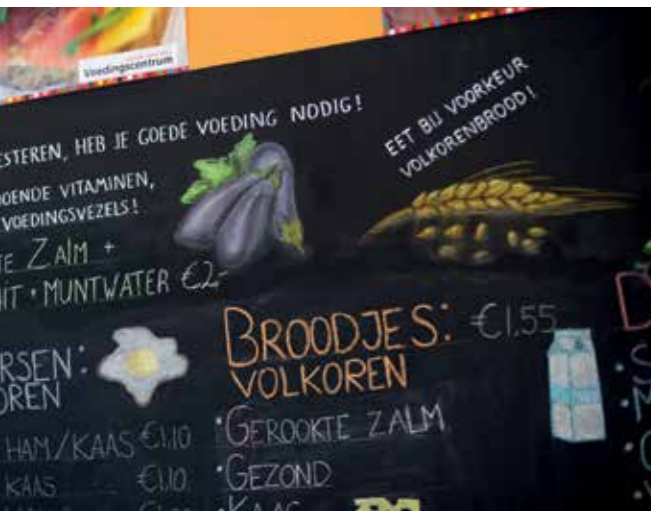 Voedingscentrum
ESTEREN, HEB JE GOEDE VOEDING NODIG!
OENDE VITAMINEN,
VOEDINGSVEZELS!
TE ZALM +
HIT • MUNTWATER €2,-
EET BIJ VOORKEUR
VOLKORENBROOD!
RSEN:
OREN
HAM/KAAS €1.10
KAAS €1.10
BROODJES: €1.55
VOLKOREN
• GEROOKTE ZALM
• GEZOND
• KAAS